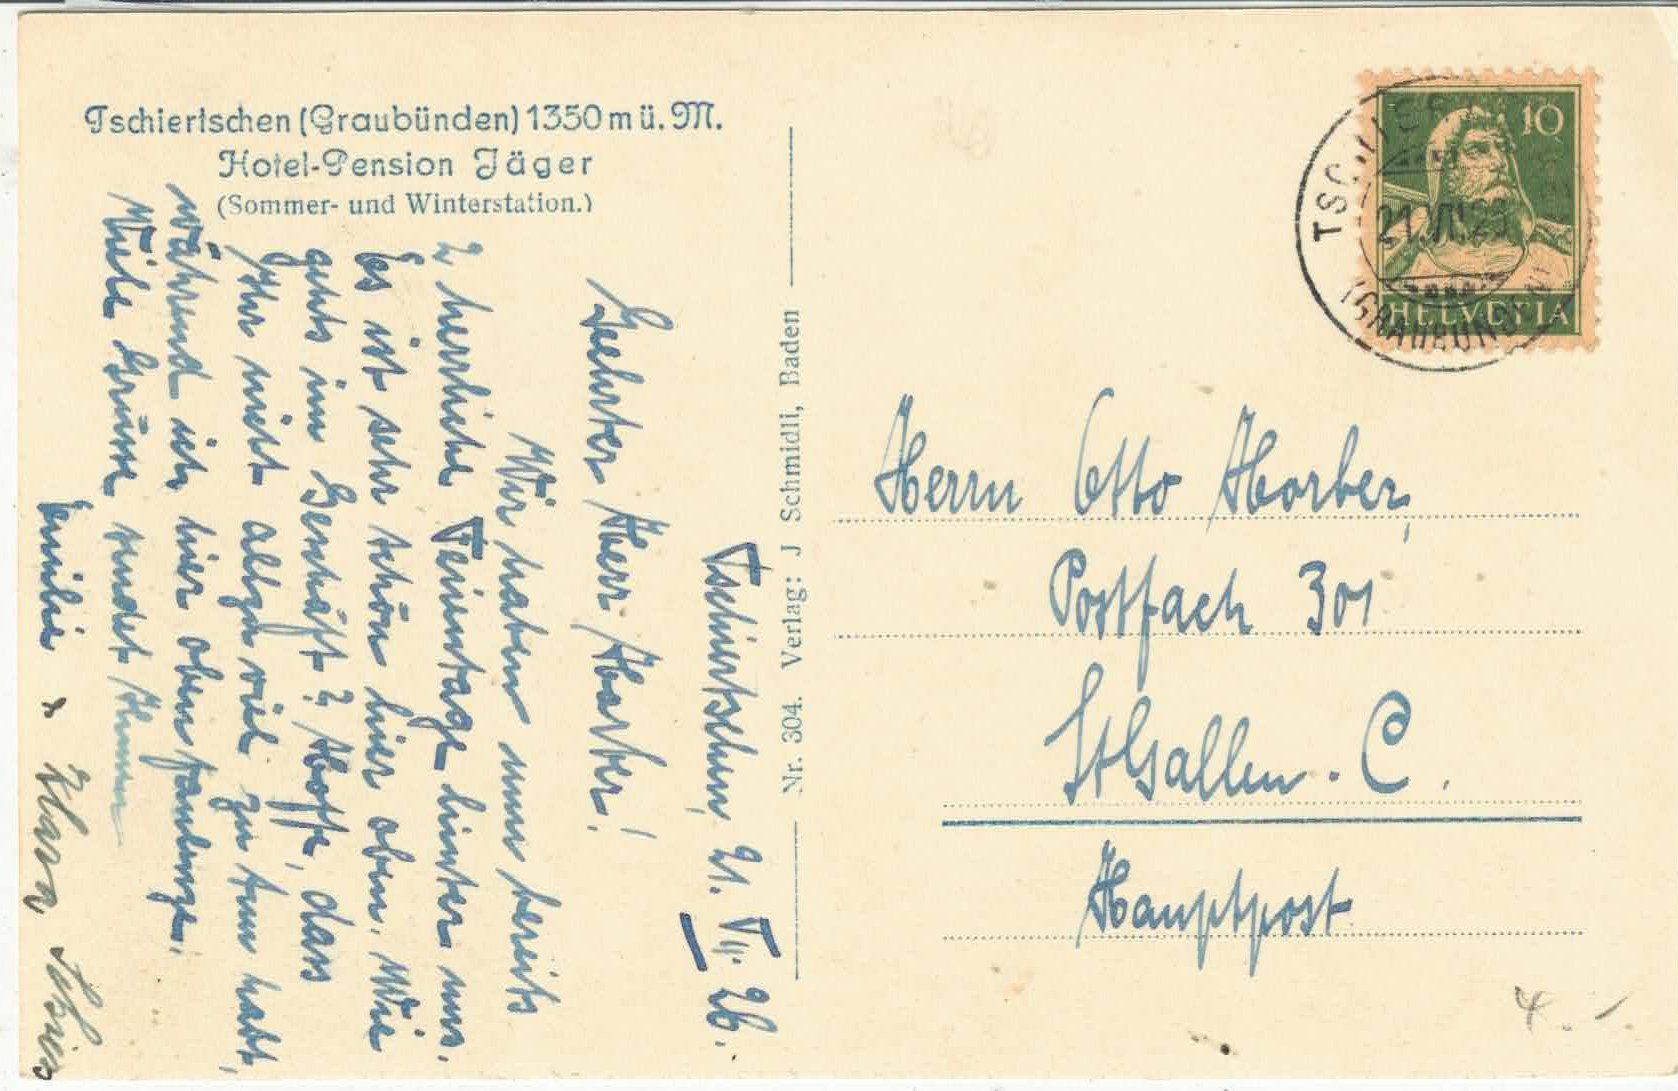 Tschiertschen (Graubünden) 1350 m ü. M.
Hotel-Pension Jäger
(Sommer- und Winterstation.)
Tschiertschen, 21. VII. 26.
Geehrter Herr Horber!
Wir haben nun bereits
2 herrliche Ferientage hinter uns.
Es ist sehr schön hier oben. Wie
gehts im Geschäft? Hoffe, dass
Ihr nicht allzu viel zu tun habt,
während ich hier oben faulenze.
Viele Grüsse sendet Ihnen
Emilie & Klara
Nr. 304. Verlag: J Schmidli, Baden
10
HELVETIA
TSCHIERTSCHEN
21.VII.26
(GRAUBÜNDEN)
Herrn Otto Horber,
Postfach 301
St Gallen . C .
Hauptpost
4. -